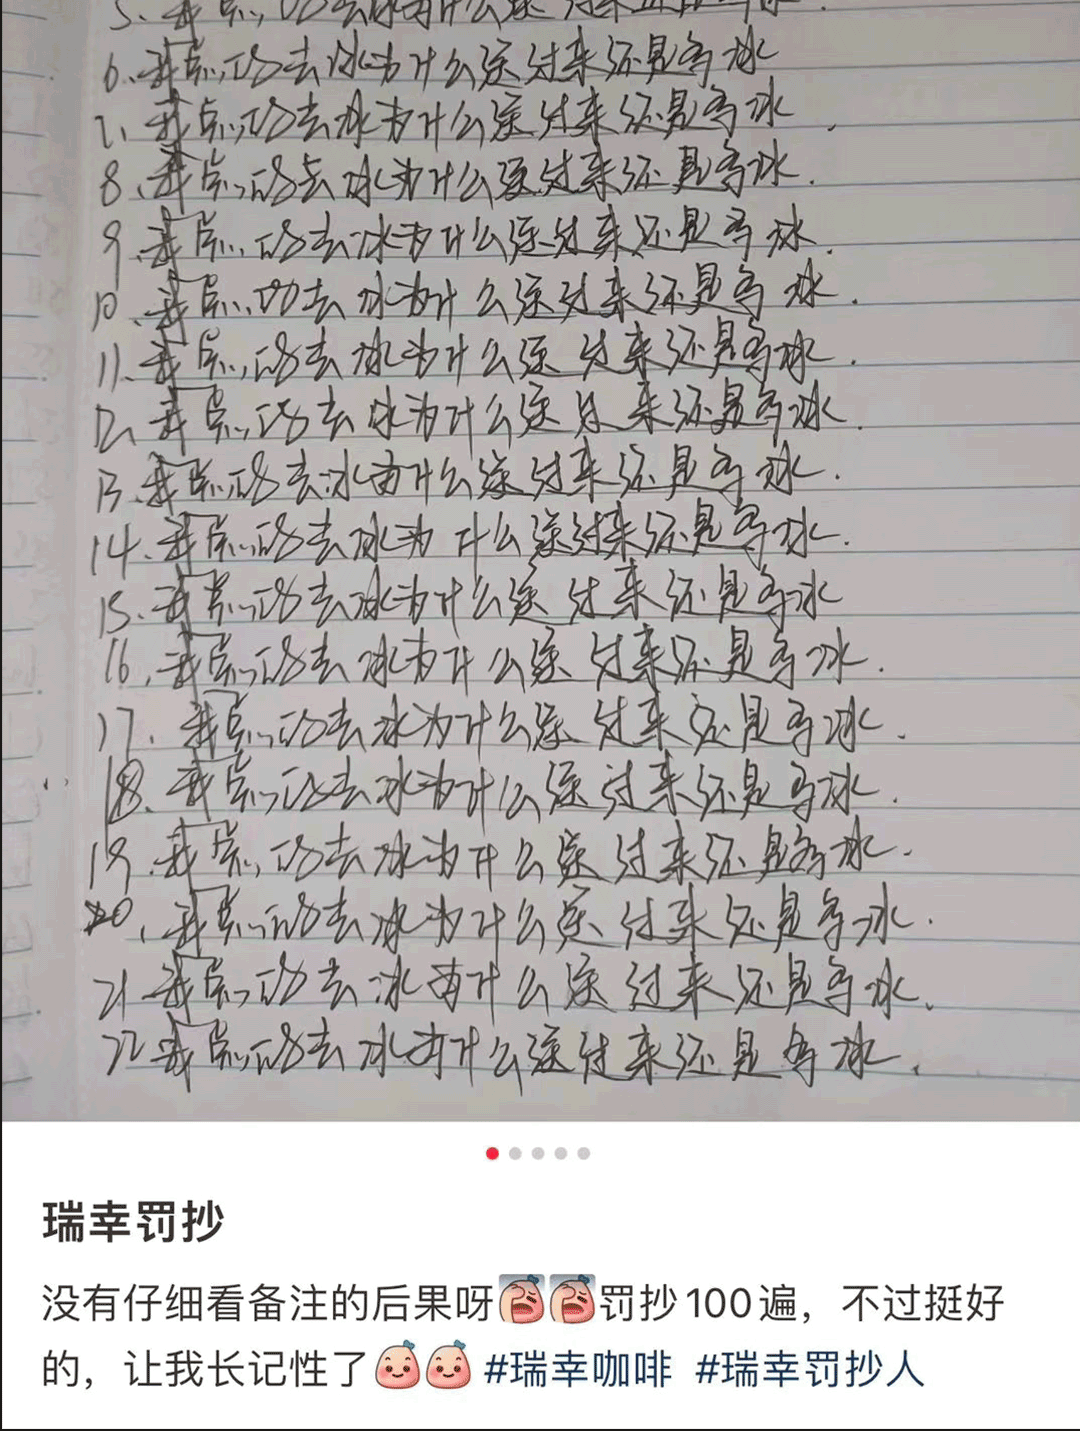 5、我点的去冰为什么送过来还是多冰.
6、我点的去冰为什么送过来还是多冰
7、我点的去冰为什么送过来还是多冰.
8、我点的去冰为什么送过来还是多冰.
9、我点的去冰为什么送过来还是多冰.
10、我点的去冰为什么送过来还是多冰.
11、我点的去冰为什么送过来还是多冰.
12、我点的去冰为什么送过来还是多冰.
13、我点的去冰为什么送过来还是多冰.
14、我点的去冰为什么送过来还是多冰.
15、我点的去冰为什么送过来还是多冰
16、我点的去冰为什么送过来还是多冰.
17、我点的去冰为什么送过来还是多冰.
18、我点的去冰为什么送过来还是多冰.
19、我点的去冰为什么送过来还是多冰.
20、我点的去冰为什么送过来还是多冰.
21、我点的去冰为什么送过来还是多冰.
22、我点的去冰为什么送过来还是多冰.
瑞幸罚抄
没有仔细看备注的后果呀罚抄100遍，不过挺好
的，让我长记性了 #瑞幸咖啡 #瑞幸罚抄人